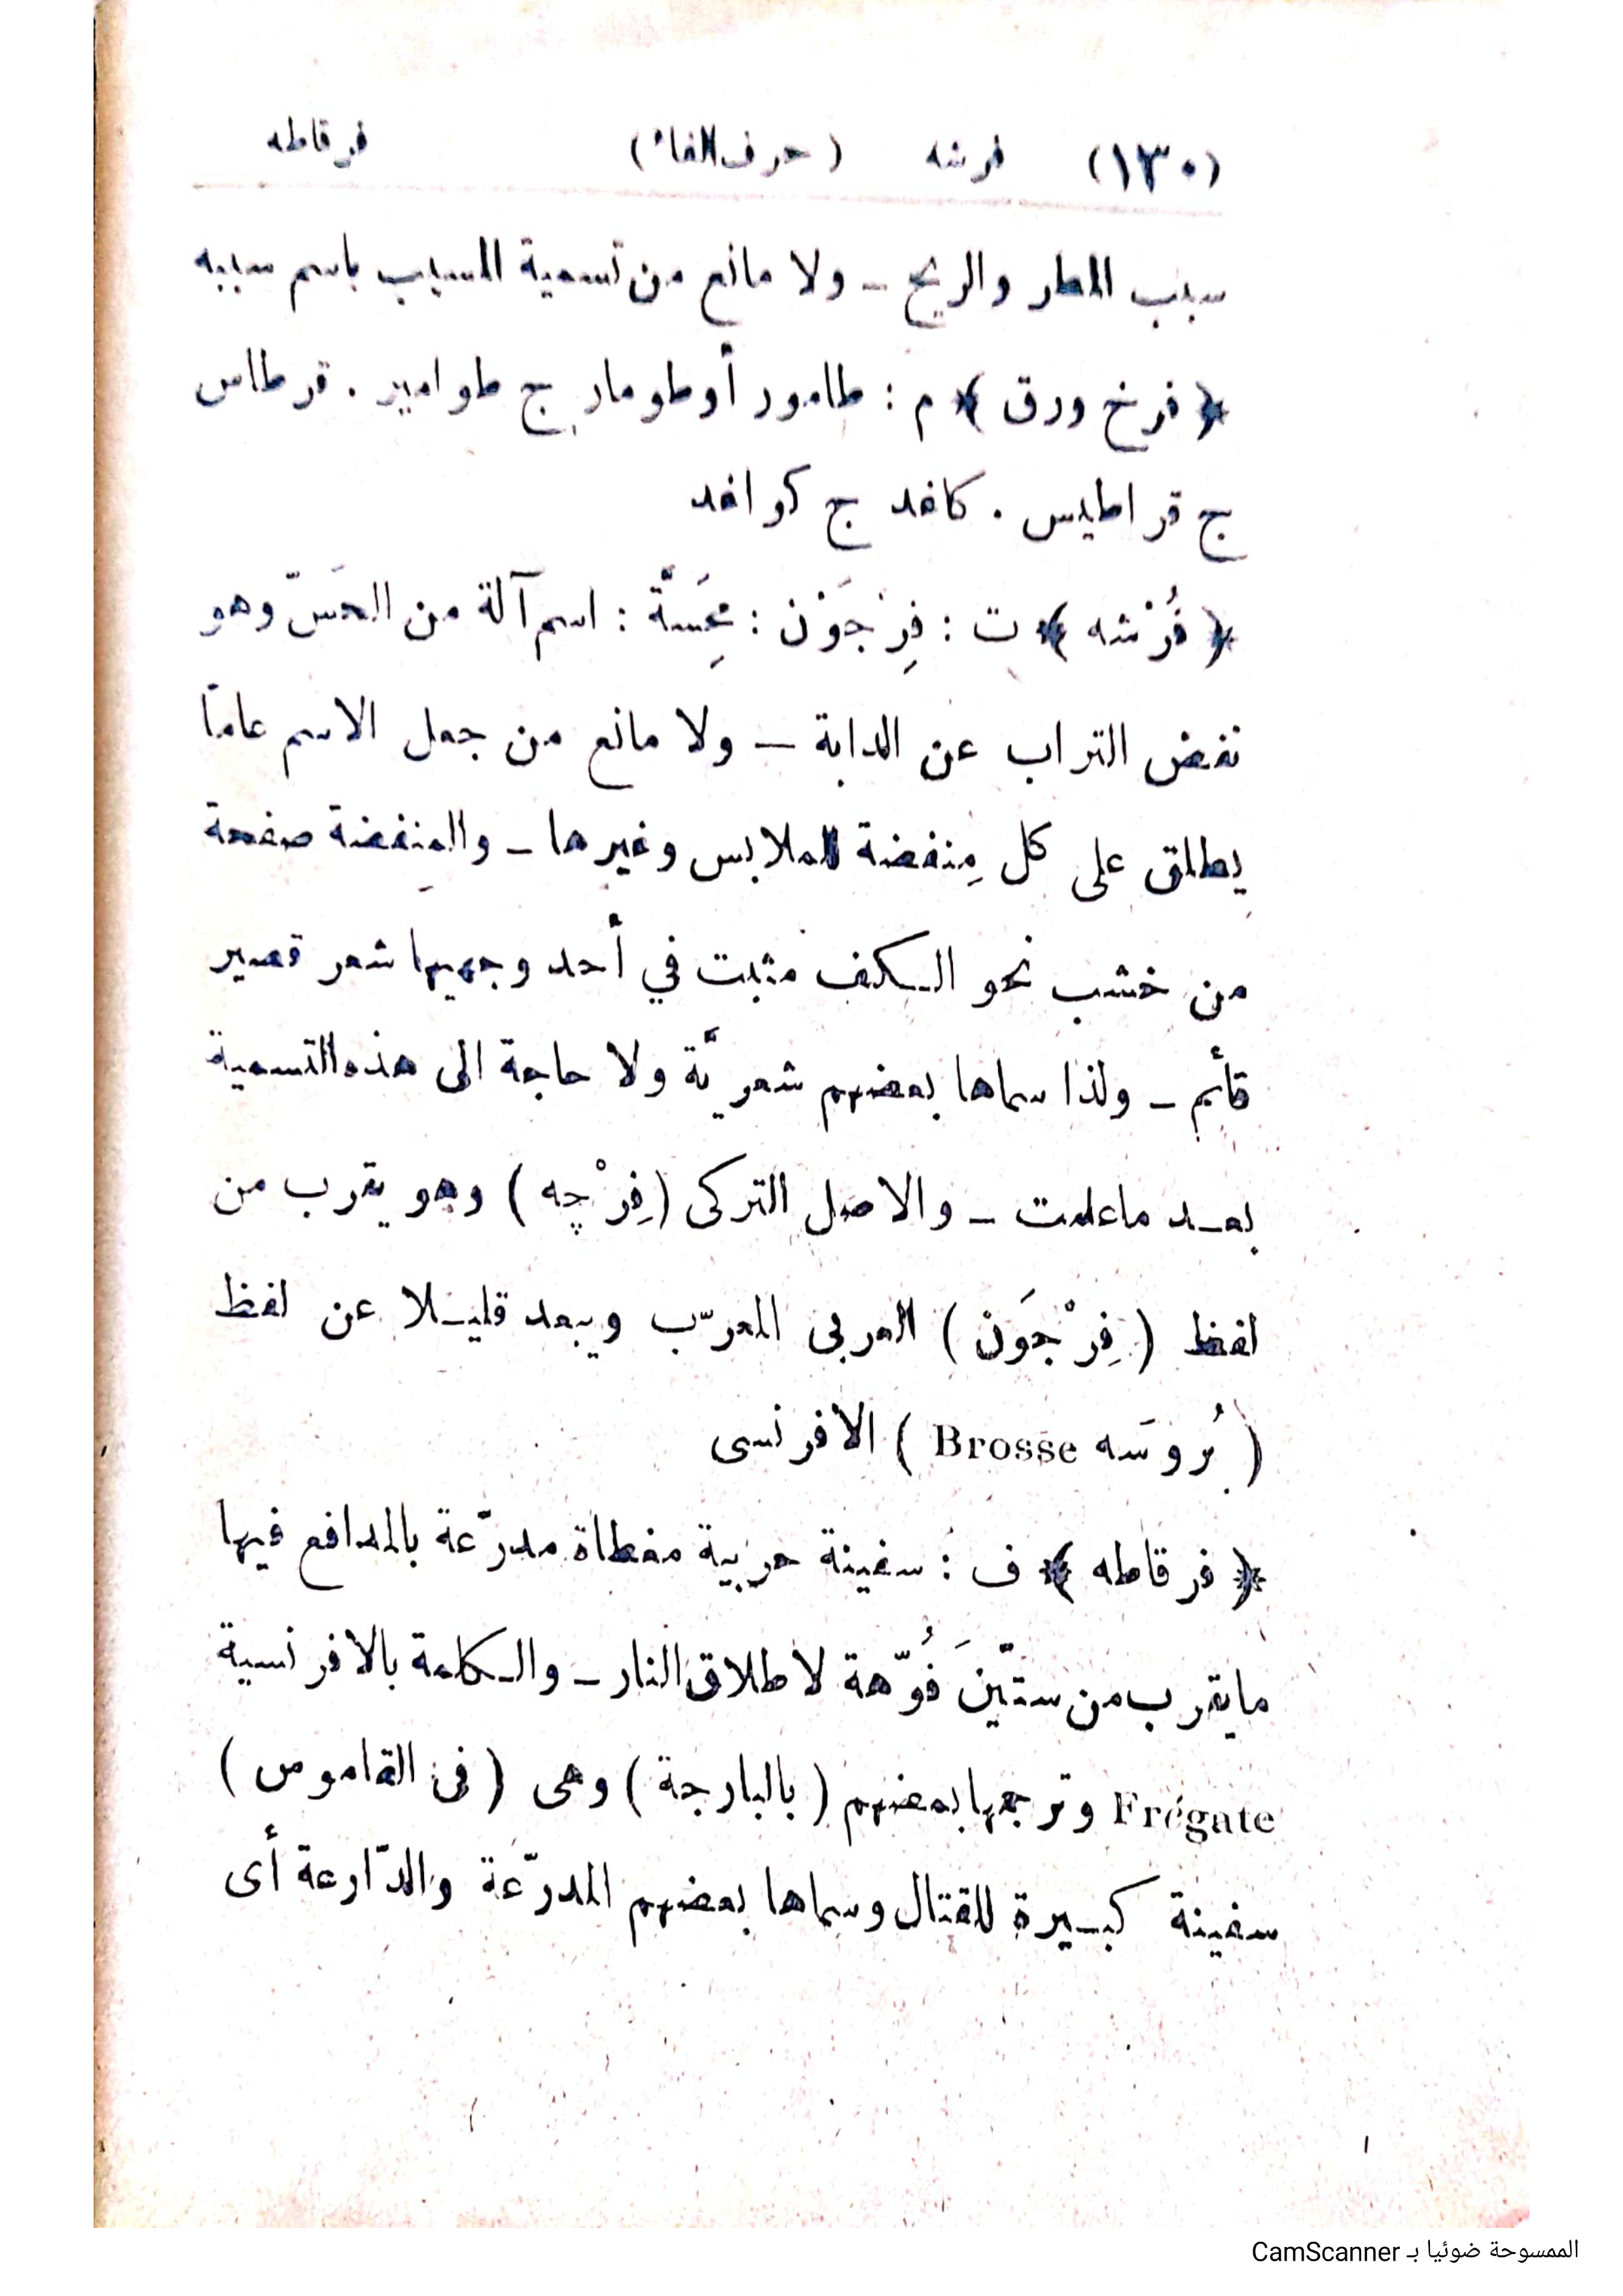 (١٣٠) فرشه (حرف الفاء) فرقاطه
سبب المطر والريح ـ ولا مانع من تسمية المسبب باسم سببه
﴿ فرخ ورق ﴾ م : طامور أو طومار ج طوامير . قرطاس
ج قراطيس . كاغد ج كواغد
﴿ فُرْشه ﴾ ت : فِرْجَوْن : مِحَسَّة : اسم آلة من الحَسّ وهو
نفض التراب عن الدابة ـ ولا مانع من جعل الاسم عاما
يطلق على كل مِنفضة للملابس وغيرها ـ والمِنفضة صفحة
من خشب نحو الكف مثبت في أحد وجهيها شعر قصير
قائم ـ ولذا سماها بعضهم شعريَّة ولا حاجة الى هذه التسمية
بعد ماعلمت ـ والاصل التركى (فِرْچه) وهو يقرب من
لفظ (فِرْجَون) العربى المعرّب ويبعد قليلا عن لفظ
(بُروسَه Brosse) الافرنسى
﴿ فرقاطه ﴾ ف : سفينة حربية مغطاة مدرّعة بالمدافع فيها
مايقرب من ستّينَ فُوّهة لاطلاق النار ـ والكلمة بالافرنسية
Frégate وترجمها بعضهم (بالبارجة) وهى (فى القاموس)
سفينة كبيرة للقتال وسماها بعضهم المدرّعة والدّارعة أى
الممسوحة ضوئيا بـ CamScanner